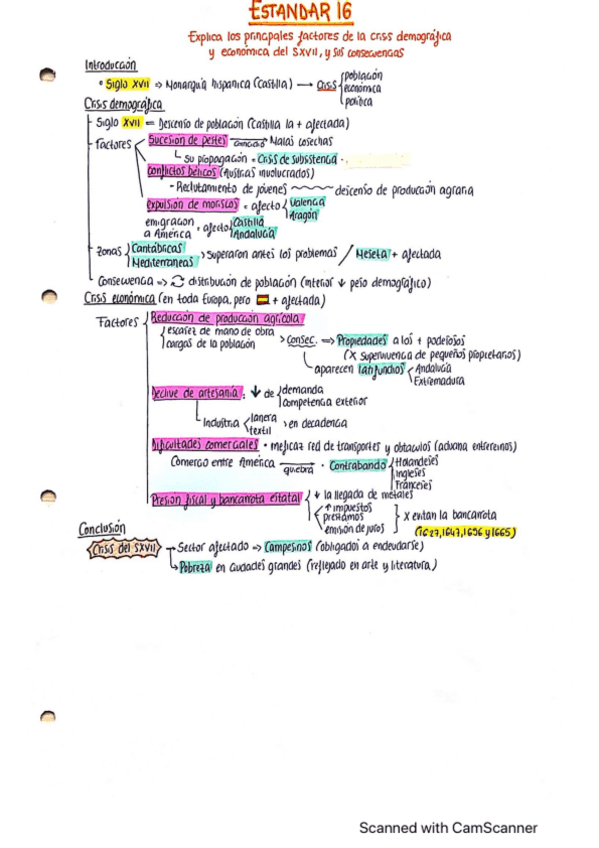 ESTANDAR 16
Explica los principales factores de la crisis demográfica
y económica del SXVII, y sus consecuencias
Introducción
• Siglo XVII => Monarquía hispanica (Castilla) → Crisis { población
económica
política
Crisis demográfica
- Siglo XVII = Descenso de población (Castilla la + afectada)
- Factores
Sucesión de pestes Malas cosechas
su propagación = Crisis de subsistencia
Conflictos bélicos (Austrias involucrados)
- Reclutamiento de jóvenes descenso de producción agraria
expulsión de moriscos • afecto { Valencia
Aragón
emigración
a América • afecto { Castilla
Andalucía
- Zonas { Cantábricas
Mediterraneas > Superaron antes los problemas / Meseta + afectada
- Consecuencia => distribución de población (interior ↓ peso demográfico)
Crisis económica (en toda Europa, pero + afectada)
Factores
Reducción de producción agrícola
{ escasez de mano de obra
cargas de la población > Consec. => Propiedades a los + poderosos
(X supervivencia de pequeños propietarios)
aparecen latifundios < Andalucía
Extremadura
Declive de artesanía: ↓ de { demanda
competencia exterior
Industria < lanera
textil > en decadencia
Dificultades comerciales • meficaz red de transportes y obstaculos (aduana entrereinos)
Comercio entre América quiebra • Contrabando { Holandeses
Ingleses
Franceses
Presión fiscal y bancarrota estatal { ↓ la llegada de metales
↑ impuestos
préstamos
emisión de juros } X evitan la bancarrota
(1627,1647,1656 y 1665)
Conclusión
Crisis del SXVII → Sector afectado => Campesinos (obligados a endeudarse)
↳ Pobreza en ciudades grandes (reflejado en arte y literatura)
Scanned with CamScanner